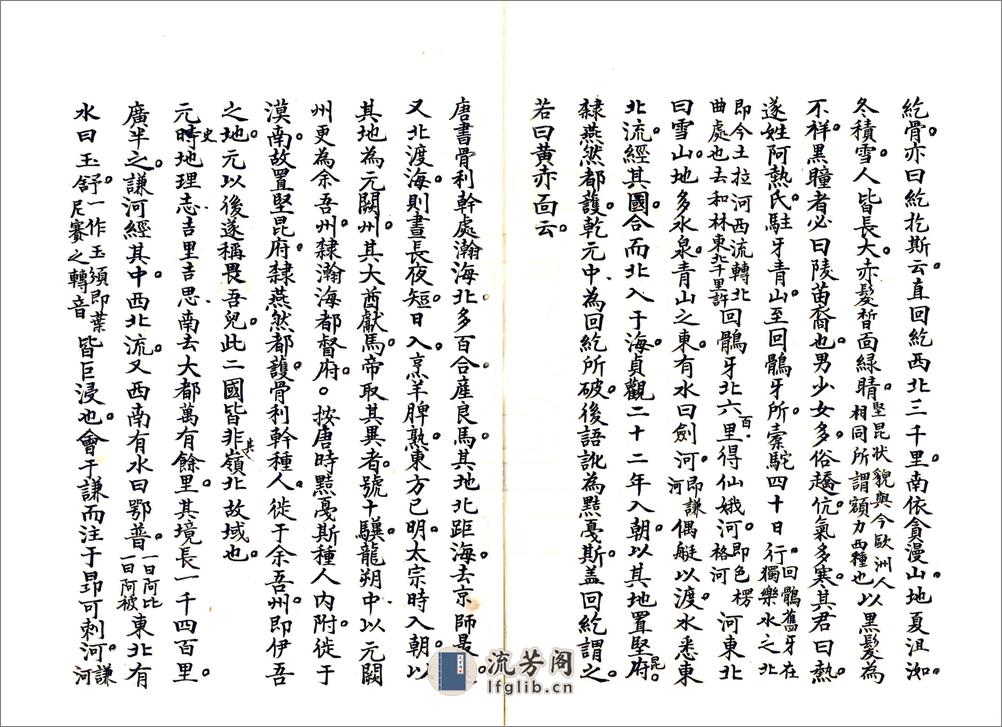 紇骨亦曰紇扢斯云直回紇西北三千里南依貪漫山地夏沮洳
冬積雪人皆長大赤髮晳面綠睛堅昆狀貌與今歐洲人相同所謂額力西種也以黑髮為
不祥黑瞳者必曰陵苗裔也男少女多俗趫伉氣多寒其君曰熱
遂姓阿熱氏駐牙青山至回鶻牙所橐駝四十日行回鶻舊牙在獨樂水之北
即今土拉河西流轉北曲處也去和林東北千里許回鶻牙北六百里得仙娥河即色楞格河河東北
曰雪山地多水泉青山之東有水曰劍河即謙河偶艇以渡水悉東
北流經其國合而北入于海貞觀二十二年入朝以其地置堅昆府
隸燕然都護乾元中為回紇所破後語訛為黠戛斯蓋回紇謂之
若曰黃赤面云
唐書骨利幹處瀚海北多百合産良馬其地北距海去京師最
又北渡海則晝長夜短日入烹羊脾熟東方已明太宗時入朝以
其地為元闕州其大酋獻馬帝取其異者號十驥龍朔中以元闕
州更為余吾州隸瀚海都督府按唐時黠戛斯種人內附徙于
漠南故置堅昆府隸燕然都護骨利幹種人徙于余吾州即伊吾
之地元以後遂稱畏吾兒此二國皆非其嶺北故域也
元時史地理志吉里吉思南去大都萬有餘里其境長一千四百里
廣半之謙河經其中西北流又西南有水曰鄂普一曰阿比一曰阿被東北有
水曰玉舒一作玉須即葉尼賽之轉音皆巨浸也會于謙而注于昂可刺河謙河
流芳阁
lfglib.cn